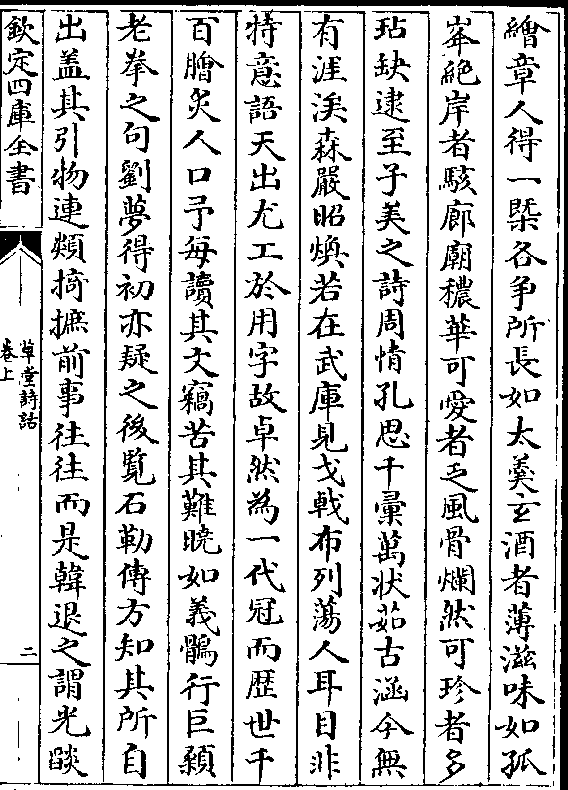 繪章人得一槩各争所長如太羮玄酒者薄滋味如孤
峯絶岸者駭廊廟穠華可愛者乏風骨爛然可珍者多
玷缺逮至子美之詩周情孔思千彚萬状茹古涵今無
有涯涘森嚴昭煥若在武庫見戈戟布列蕩人耳目非
特意語天出尤工於用字故卓然為一代冠而歴世千
百膾炙人口予每讀其文竊苦其難曉如義鶻行巨顙
老拳之句劉夢得初亦疑之後覧石勒傳方知其所自
出盖其引物連類掎摭前事往往而是韓退之謂光燄
欽定四庫全書
草堂詩話
卷上
二